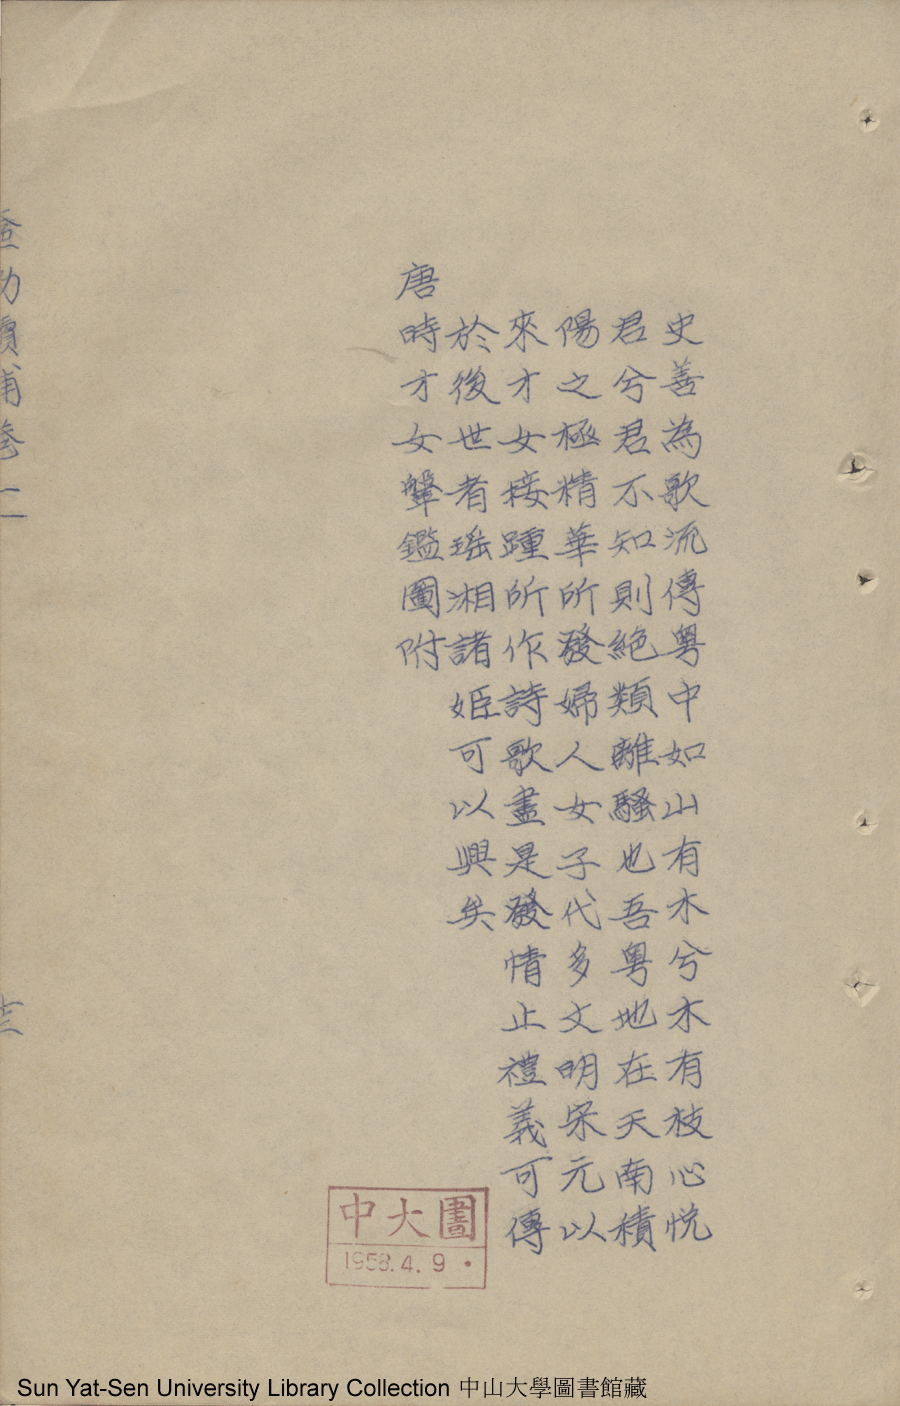 史善為歌流傳粤中如山有木兮木有枝心悅
君兮君不知則絕類離騷也吾粤地在天南積
陽之極精華所發婦人女子代多文明宋元以
來才女接踵所作詩歌盡是發情止禮義可傳
於後世者瑤湘諸姬可以興矣
唐時才女鞶鑑圖附
補卷二
十三
中大圖
1958.4.9
Sun Yat-Sen University Library Collection 中山大學圖書館藏